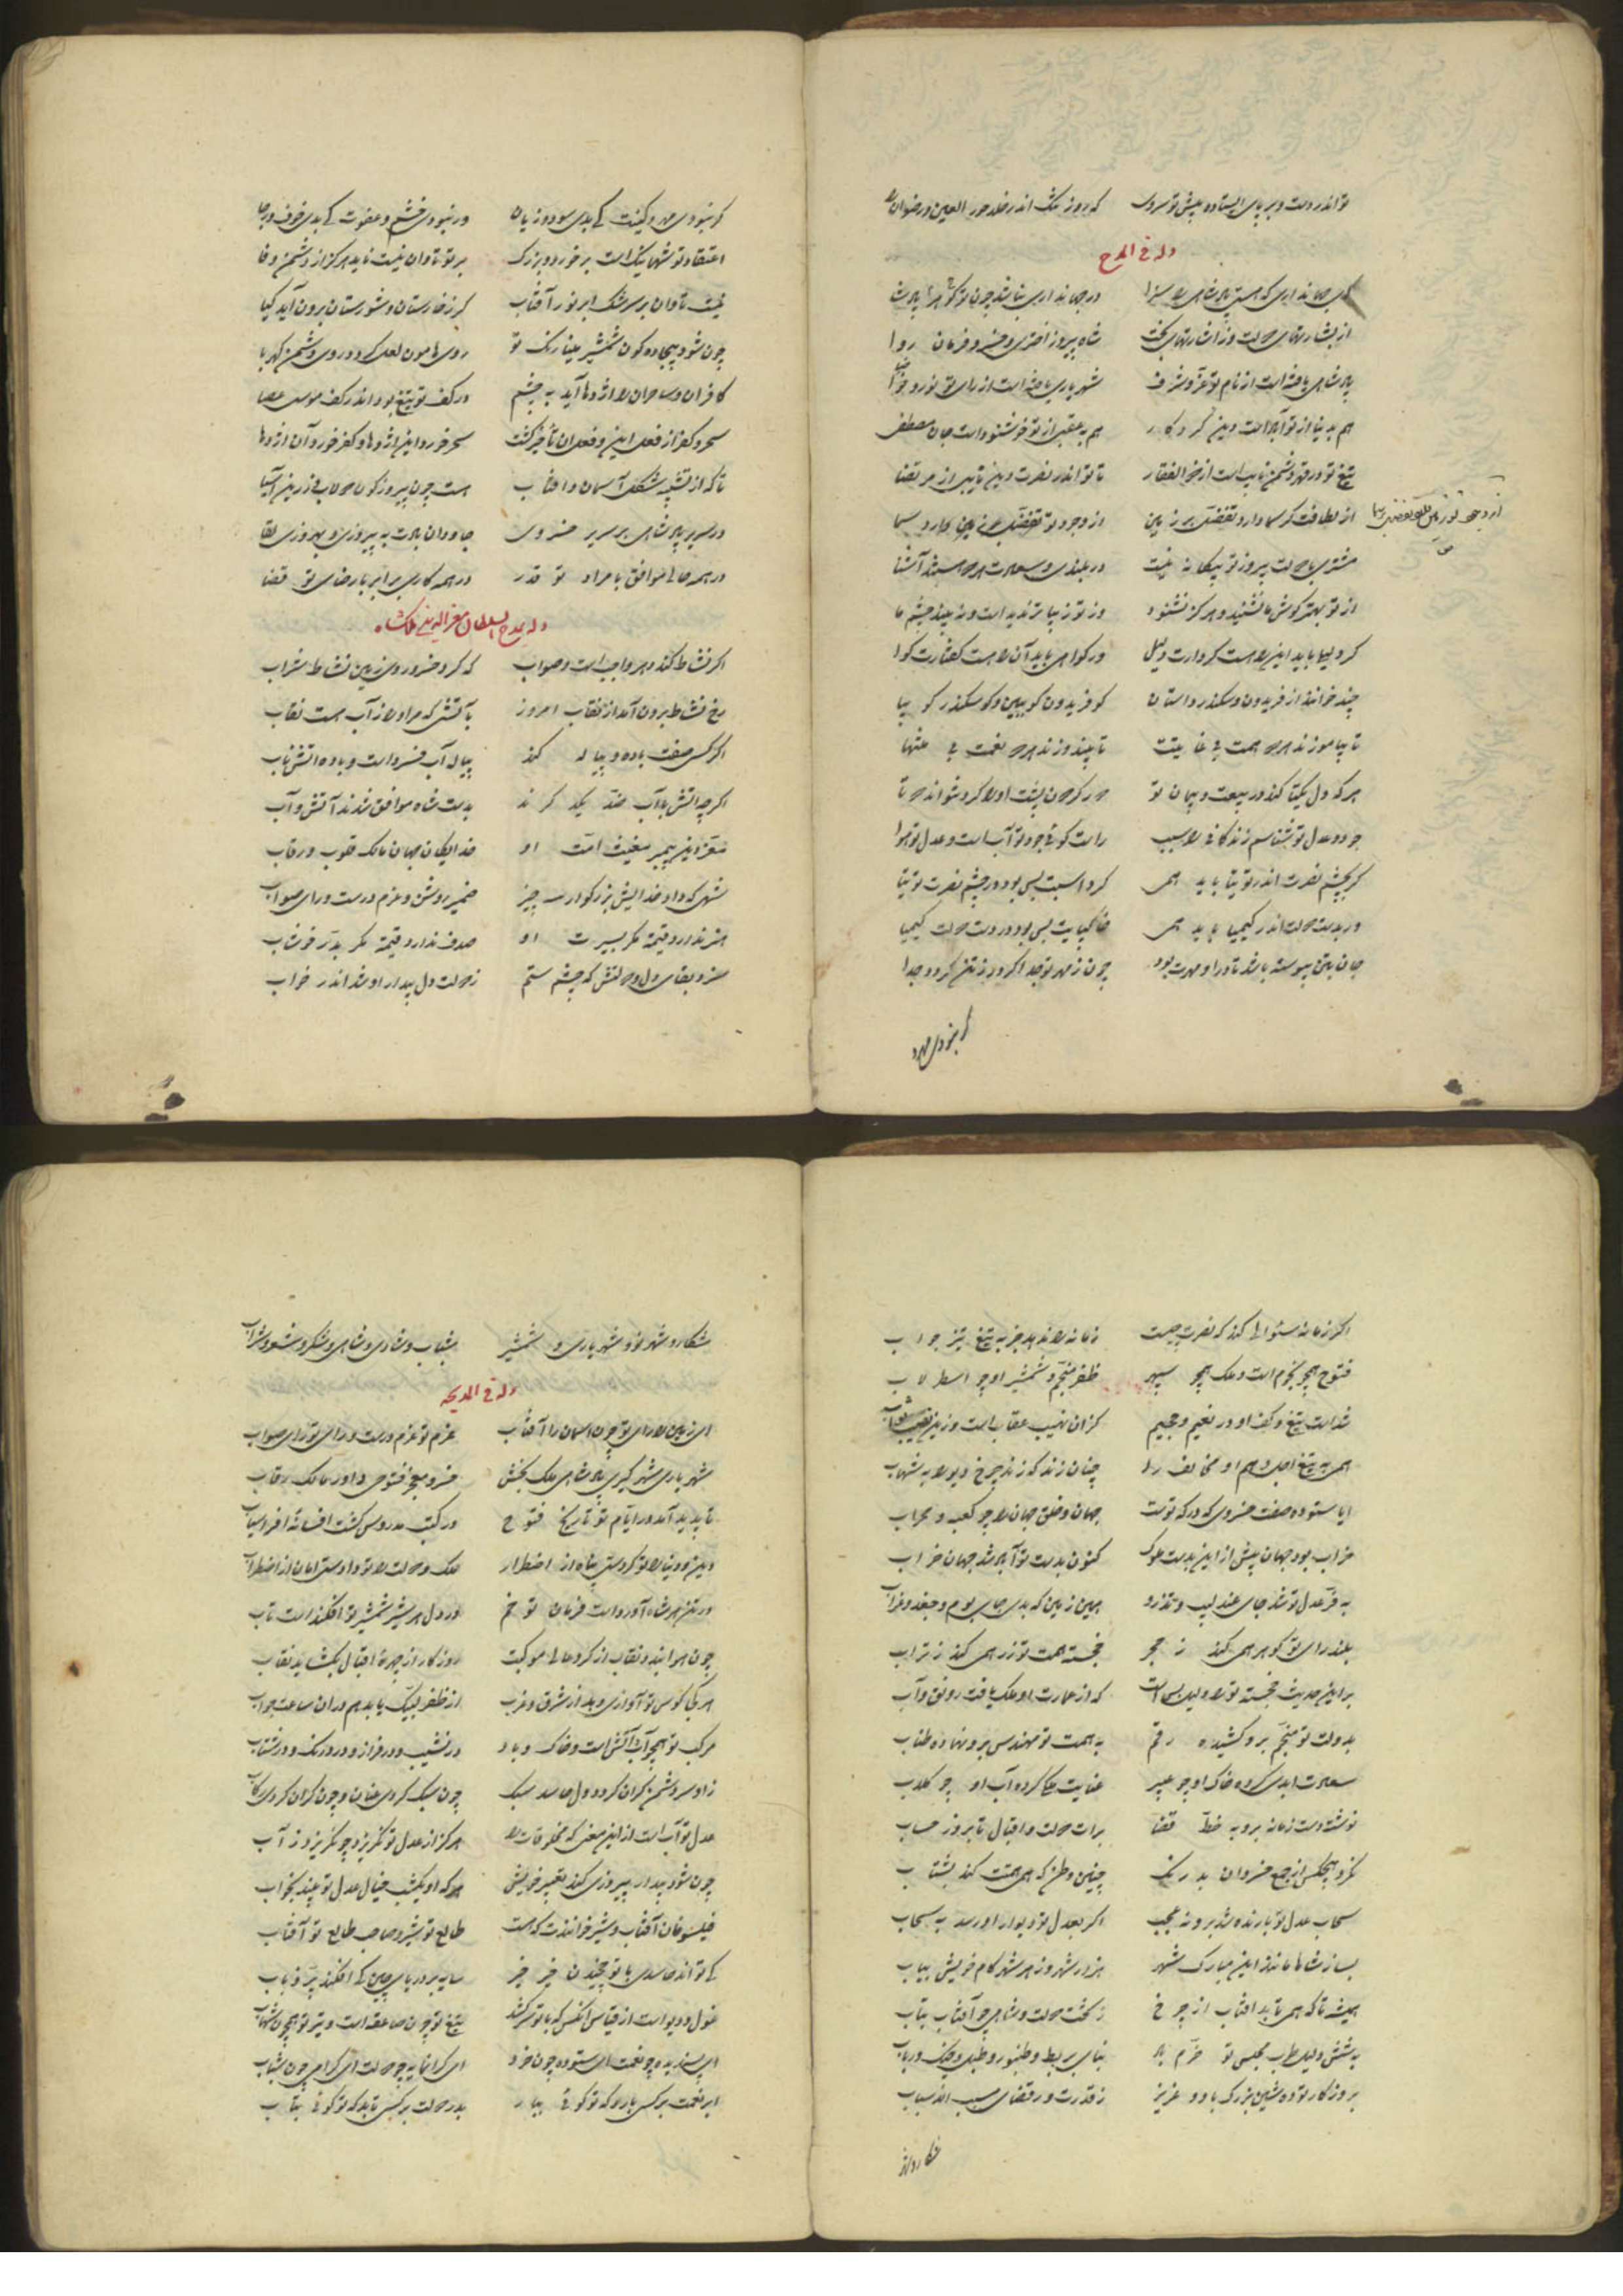 تو اندر دست و بر پای ایستاده پیش تو سروی که روز یک اندر خلد حور العین و رضوان
وله فی المدح
ای جهانداری که هست پادشاهی را سزا در جهانداری نباشد چون تو کوهر پادشا
از بشارتهای دولت وز اشارتهای بخت شاه پیروز اختری و خسرو فرمان روا
پادشاهی یافته است از نام تو عز و شرف شهریاری یافته است از رای تو نور و ضیا
هم بدنیا از تو آباد است دین کردکار هم بعقبی از تو خوشنود است جان مصطفی
تیغ تو در قهر دشمن نایب است از ذوالفقار تا تو اندر نصرت دین نایبی از مرتضا
از لطافت کر سما دارد تفضل بر زمین از وجود تو تفضل بر زمین دارد سما
مشتری با دولت پیروز تو بیکانه نیست در بلندی و سعادت هر دو هستند آشنا
از تو بهتر کوش ما نشنید و هرکز نشنود وز تو زیباتر ندید است و نبیند چشم ما
کر دلیل باید این را هست کردارت دلیل ور کواهی باید آن را هست کفتارت کوا
چند خوانند از فریدون و سکندر داستان کو فریدون کو ببین و کو سکندر کو بیا
تا بیاموزند هر دو همت بی غایتت تا ببینند هر دو نعمت بی منتها
هر که دل یکتا کند در بیعت و پیمان تو دور کردون پشت او را کرد نتواند دو تا
جود و عدل تو شناسم زندکانی را سبب راست کوئی جود تو آب است و عدل تو هوا
کر بچشم نصرت اندر توتیا باید همی کرد اسبت بس بود در چشم نصرت توتیا
ور بدست دولت اندر کیمیا باید همی خاک پایت بس بود در دست دولت کیمیا
جان بتن پیوسته باشد تا در او مهرت بود چون ز مهر تو جدا کردد ز تن کردد جدا
کر نبودی مهر
کر نبودی مهر و کینت کی بدی سود و زیان ور نبودی خشم و عفوت کی بدی خوف و رجا
اعتقاد تو شها نیک است بر خورد و بزرک بر تو تاوان نیست ناید هرکز از دشمن وفا
نیست تاوان بر سرشک ابر نور آفتاب کر ز خارستان و شورستان برون آید کیا
چون شود بیجاده کون شمشیر مینا رنک تو روی هامون لعل کردد روی دشمن کهربا
کافران و ساحران را اژدها آید به چشم در کف تو تیغ بود اندر کف موسی عصا
سحر و کفر از فعل این و فعل آن ناچیز کشت سحر خورد این اژدها و کفر خورد آن اژدها
تا که از تشبیه شکل آسمان و آفتاب هست چون پیروزه کون دولاب و زرین آسیا
در سریر پادشاهی بر سریر خسروی جاودان بادت به پیروزی و بهروزی بقا
در همه حالی موافق با مراد تو قدر در همه کاری برابر با رضای تو قضا
وله بمدح السلطان معز الدین ملکشاه
اکر نشاط کند دهر واجب است و صواب که کرد خسرو روی زمین نشاط شراب
رخ نشاط برون آمد از نقاب امروز بآتشی که مر او را ز آب هست نقاب
اکر کسی صفت باده و پیاله کند پیاله آب فسرده است و باده آتش ناب
اکرچه آتش با آب ضد یکدیکرند بدست شاه موافق شدند آتش و آب
معز دین پیمبر مغیث امت او خدایکان جهان مالک قلوب و رقاب
شهی که داد خدایش بزرکوار سه چیز ضمیر روشن و عزم درست و رای صواب
هنر ندارد قیمت مکر بسیرت او صدف ندارد قیمت مکر بدر خوشاب
سزد بقای دل و دولتش که چشم ستم ز دولت دل بیدار او شد اندر خواب
اکر زمانه سئوالی کند که نصرت چیست زمانه را ندهد جز به تیغ تیز جواب
فتوح همچو نجوم است و ملک همچو سپهر ظفر منجم و شمشیر او چو اسطرلاب
شد است تیغ و کف او در نعیم و جحیم کزان نهیب عقاب است وزین نصیب ثواب
همی به تیغ اجل وهم او مخالف را چنان زند که زند چرخ دیو را به شهاب
ایا ستوده صفت خسروی که درکه توست جهان و خلق جهان را چو کعبه و محراب
خراب بود جهان پیش از این بدست ملوک کنون بدست تو آباد شد جهان خراب
به فر عدل تو شد جای عندلیب و تذرو همین زمین که بدی جای بوم و جغد و غراب
بلند رای تو کوهر همی کند ز حجر خجسته همت تو زر همی کند ز تراب
بر این حدیث خجسته تو را دلیل بس است که از عمارت او ملک یافت رونق و آب
بدولت تو منجم برو کشیده رقم به همت تو مهندس برو نهاده طناب
سعادت ابدی کرده خاک او چو عبیر عنایت ملکی کرده آب او چو کلاب
نوشته دست زمانه برو به خط قضا برات دولت و اقبال تا بروز حساب
نکرد هیچکس از جمع خسروان بدرنک چنین وطن که همی همتت کند بشتاب
سحاب عدل تو بارنده شد برو نه عجب اکر بعدل تو دیوار او رسد به سحاب
بساز شاها مانند این مبارک شهر هزار شهر و ز هر شهر کام خویش بیاب
همیشه تا که همی تابد آفتاب از چرخ ز تخت دولت و شاهی چو آفتاب بتاب
به شش دلیل طرب مجلس تو خرم باد بنای بربط و طنبور و طبل و چنک و رباب
بروزکار تو ده شین بزرک باد و عزیز ز قدرت و ز قضای مسبب الاسباب
شکار و شهر
شکار و شهر تو و شهریاری و شمشیر شباب و شادی و شاهی و شکر و شعر و شراب
وله فی المدیحه
ای زمین را رای تو چون آسمان را آفتاب عزم تو عزم درست و رای تو رای صواب
شهریاری شهرکیری پادشاهی ملک بخش خسرو معجز فتوحی داور مالک رقاب
تا پدید آمد در ایام تو تاریخ فتوح در کتب مدروس کشت افسانه افراسیاب
دین و دنیا را تو کردستی پناه از اضطرار ملک و دولت را تو دادستی امان از اضطراب
در تن هر شاه آورده است فرمان تو خم در دل هر شیر شمشیر تو افکنده است تاب
چون هوا بندد نقاب از کرد عالی موکبت روزکار از چهره اقبال بکشاید نقاب
هر یکی کوس تو آوازی دهد از شرق و غرب از ظفر لبیک یابد هم در آن ساعت جواب
مرکب تو همچو آب آتش است و خاک و باد در نشیب و در فراز و در درنک و در شتاب
زو سر دشمن کران کردد دل حاسد سبک چون سبک کردی عنان و چون کران کردی رکاب
عدل تو آب است از این معنی که مخلوقات را هرکز از عدل تو نکریزد چو نکریزد ز آب
چون شود بیدار پیروزی کند تعبیر خویش هر که او یکشب خیال عدل تو بیند بخواب
فیلسوفان آفتاب و شیر خوانندت که هست طالع تو شیر و صاحب طالع تو آفتاب
کی تواند حاسدی با تو چخیدن خیرخیر سایه بر دریای چین کی افکند پر ذباب
غول و دیو است از قیاس آنکس که با تو سر کشد تیغ تو چون صاعقه است و تیر تو همچون شهاب
ای پسندیده چو نعمت ای ستوده چون خرد ای کرانمایه چو دولت ای کرامی چون شباب
ابر نعمت بر کسی بارد که تو کوئی ببار بدر دولت بر کسی تابد که تو کوئی بتاب